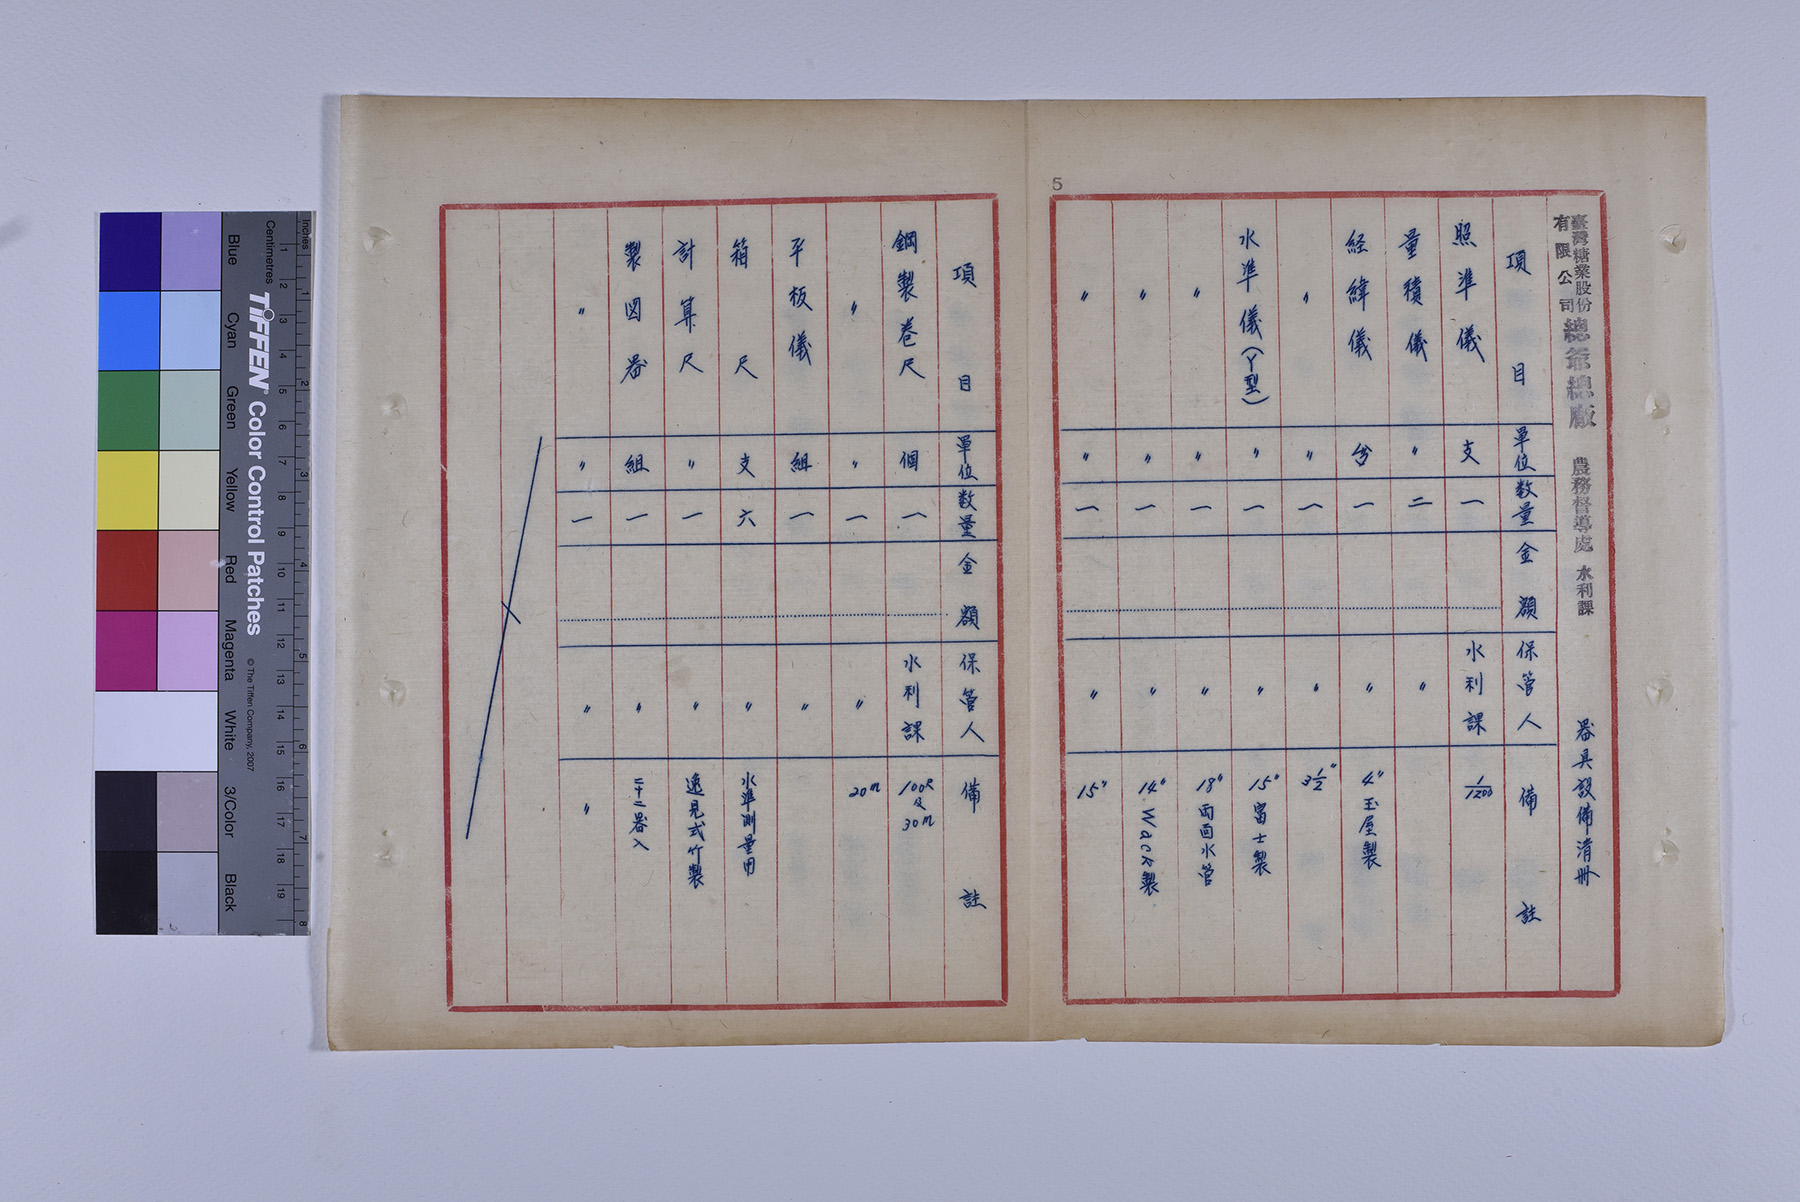 5
臺灣糖業股份有限公司 總爺總廠 農務督導處 水利課 器具設備清冊
項目 單位 数量 金額 保管人 備註
照準儀 支 一 水利課 1/1200
量積儀 〃 二 〃
経緯儀 台 一 〃 4〃玉屋製
〃 〃 一 〃 3 1/2〃
水準儀(Y型) 〃 一 〃 15〃富士製
〃 〃 一 〃 18〃両面水管
〃 〃 一 〃 14〃Wack製
〃 〃 一 〃 15〃
項目 單位 数量 金額 保管人 備註
鋼製巻尺 個 一 水利課 100尺及30m
〃 〃 一 〃 20m
平板儀 組 一 〃
箱尺 支 六 〃 水準測量用
計算尺 〃 一 〃 逸見式竹製
製図器 組 一 〃 二十二器入
〃 〃 一 〃 〃
Inches
Centimetres
TIFFEN® Color Control Patches
© The Tiffen Company, 2007
Blue
Cyan
Green
Yellow
Red
Magenta
White
3/Color
Black
1 2 3 4 5 6 7 8
1 2 3 4 5 6 7 8 9 10 11 12 13 14 15 16 17 18 19